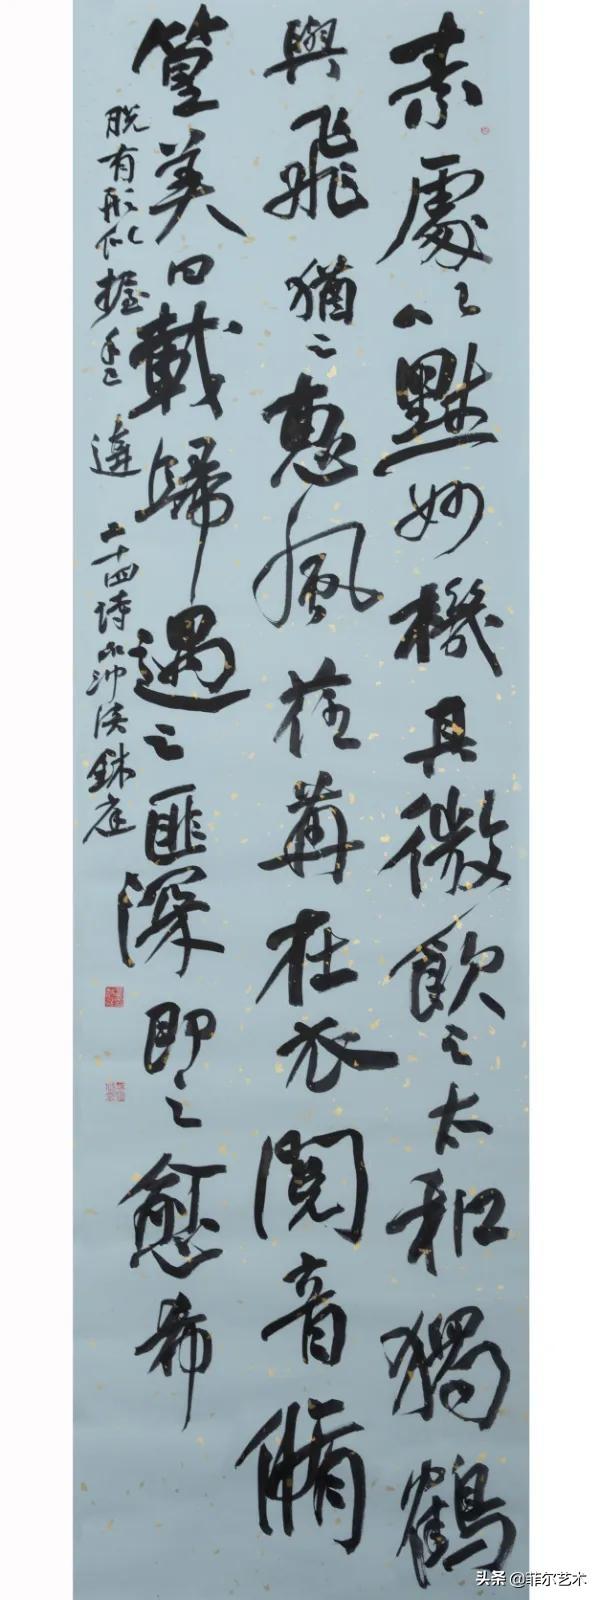 素處以默妙機其微飲之太和獨鶴
與飛猶之惠風荏苒在衣閱音脩
篁美曰載歸遇之匪深即之愈希
脫有形似握手已違 二十四詩品冲淡 庭
头条 @菲尔艺术